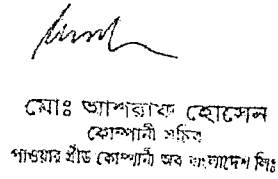 মোঃ আশরাফ হোসেন
কোম্পানী সচিব
পাওয়ার গ্রীড কোম্পানী অব বাংলাদেশ লিঃ